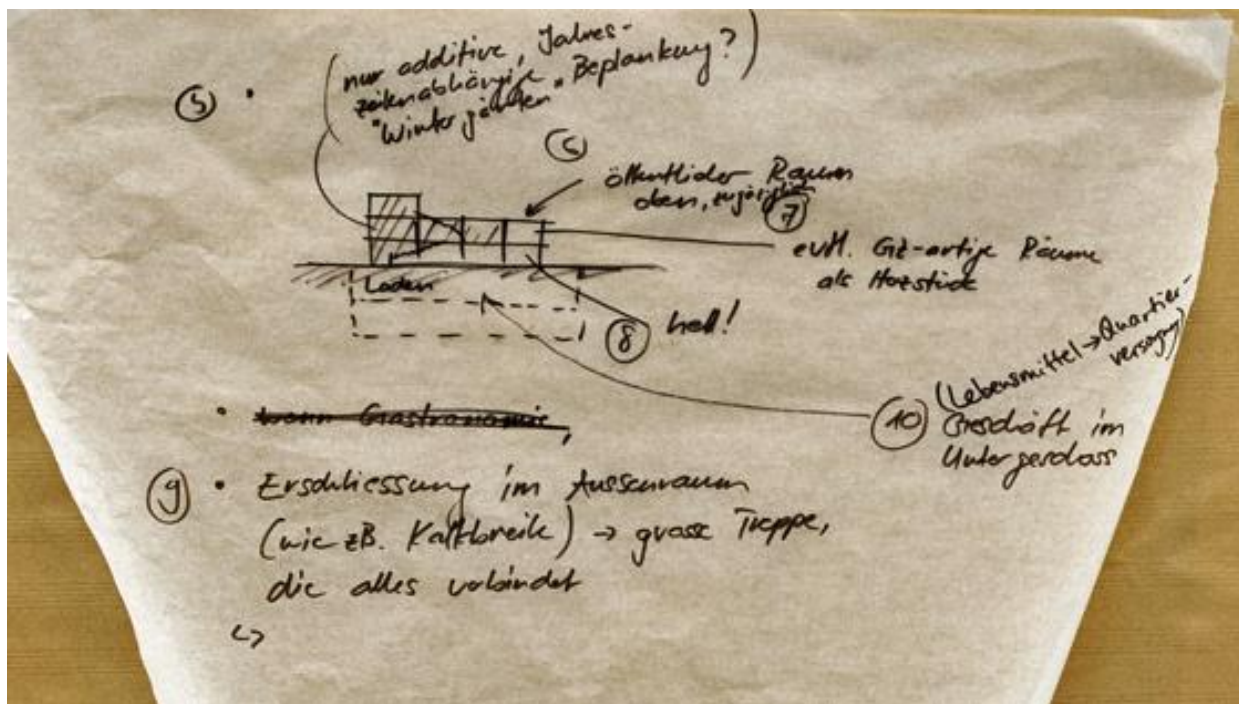 (nur additive, Jahres-
zeitenabhängige
"Wintergärten" Beplankung?)
5 •
6
öffentlicher Raum
oben, zugänglich
7
evtl. GZ-artige Räume
als Herzstück
Laden
8 hell!
(Lebensmittel → Quartier-
versorgung)
10 Geschäft im
Untergeschoss
• wenn Gastronomie,
9 • Erschliessung im Aussenraum
(wie zB. Kalkbreite) → grosse Treppe,
die alles verbindet
↳